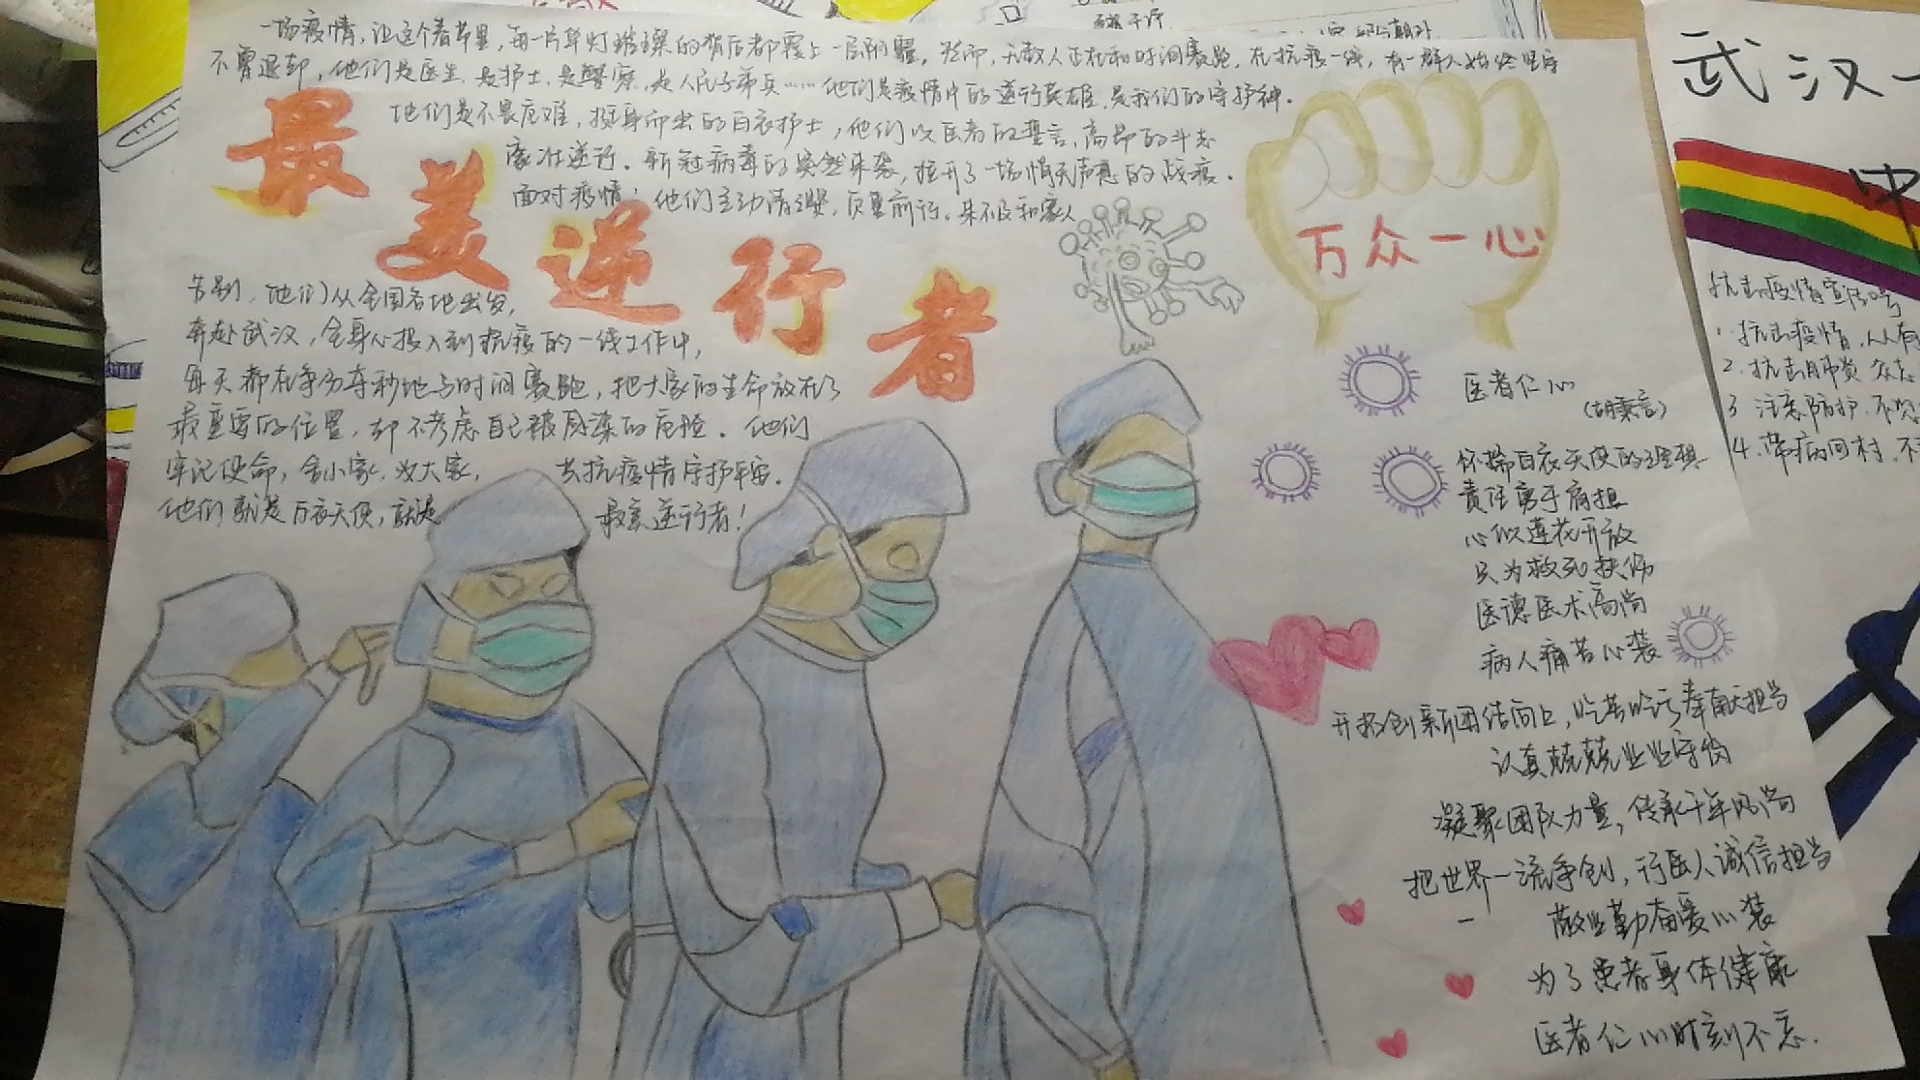 一场疫情，让这个春节里，每一片华灯璀璨的背后都覆上一层阴霾。然而，无数人正在和时间赛跑，在抗疫一线，有一群人始终坚守
不曾退却，他们是医生，是护士，是警察，是人民子弟兵……他们是疫情中的逆行英雄，是我们的守护神。
他们是不畏危难，挺身而出的白衣护士，他们以医者的誓言、高昂的斗志
逆行。新冠病毒的突然来袭，拉开了一场悄无声息的战疫。
面对疫情！他们主动请缨，负重前行。来不及和家人
告别，他们从全国各地出发，
奔赴武汉，全身心投入到抗疫的一线工作中，
每天都在争分夺秒地与时间赛跑，把大家的生命放在了
最重要的位置，却不考虑自己被感染的危险。他们
牢记使命，舍小家，为大家，去抗疫情守护平安。
他们就是白衣天使，就是最美逆行者！
最美逆行者
万众一心
医者仁心
(胡秉言)
怀揣白衣天使的理想
责任勇于肩担
心似莲花开放
只为救死扶伤
医德医术高尚
病人痛苦心装
开拓创新团结向上，吃苦吃亏奉献担当
认真兢兢业业守岗
凝聚团队力量，传承千年风尚
把世界一流争创，行医人诚信担当
敬业勤奋爱心装
为了患者身体健康
医者仁心时刻不忘.
武汉
中
抗击疫情宣传口号
1.抗击疫情，人人有
2.抗击肺炎 众志
3 注意防护，不
4.带病回村，不